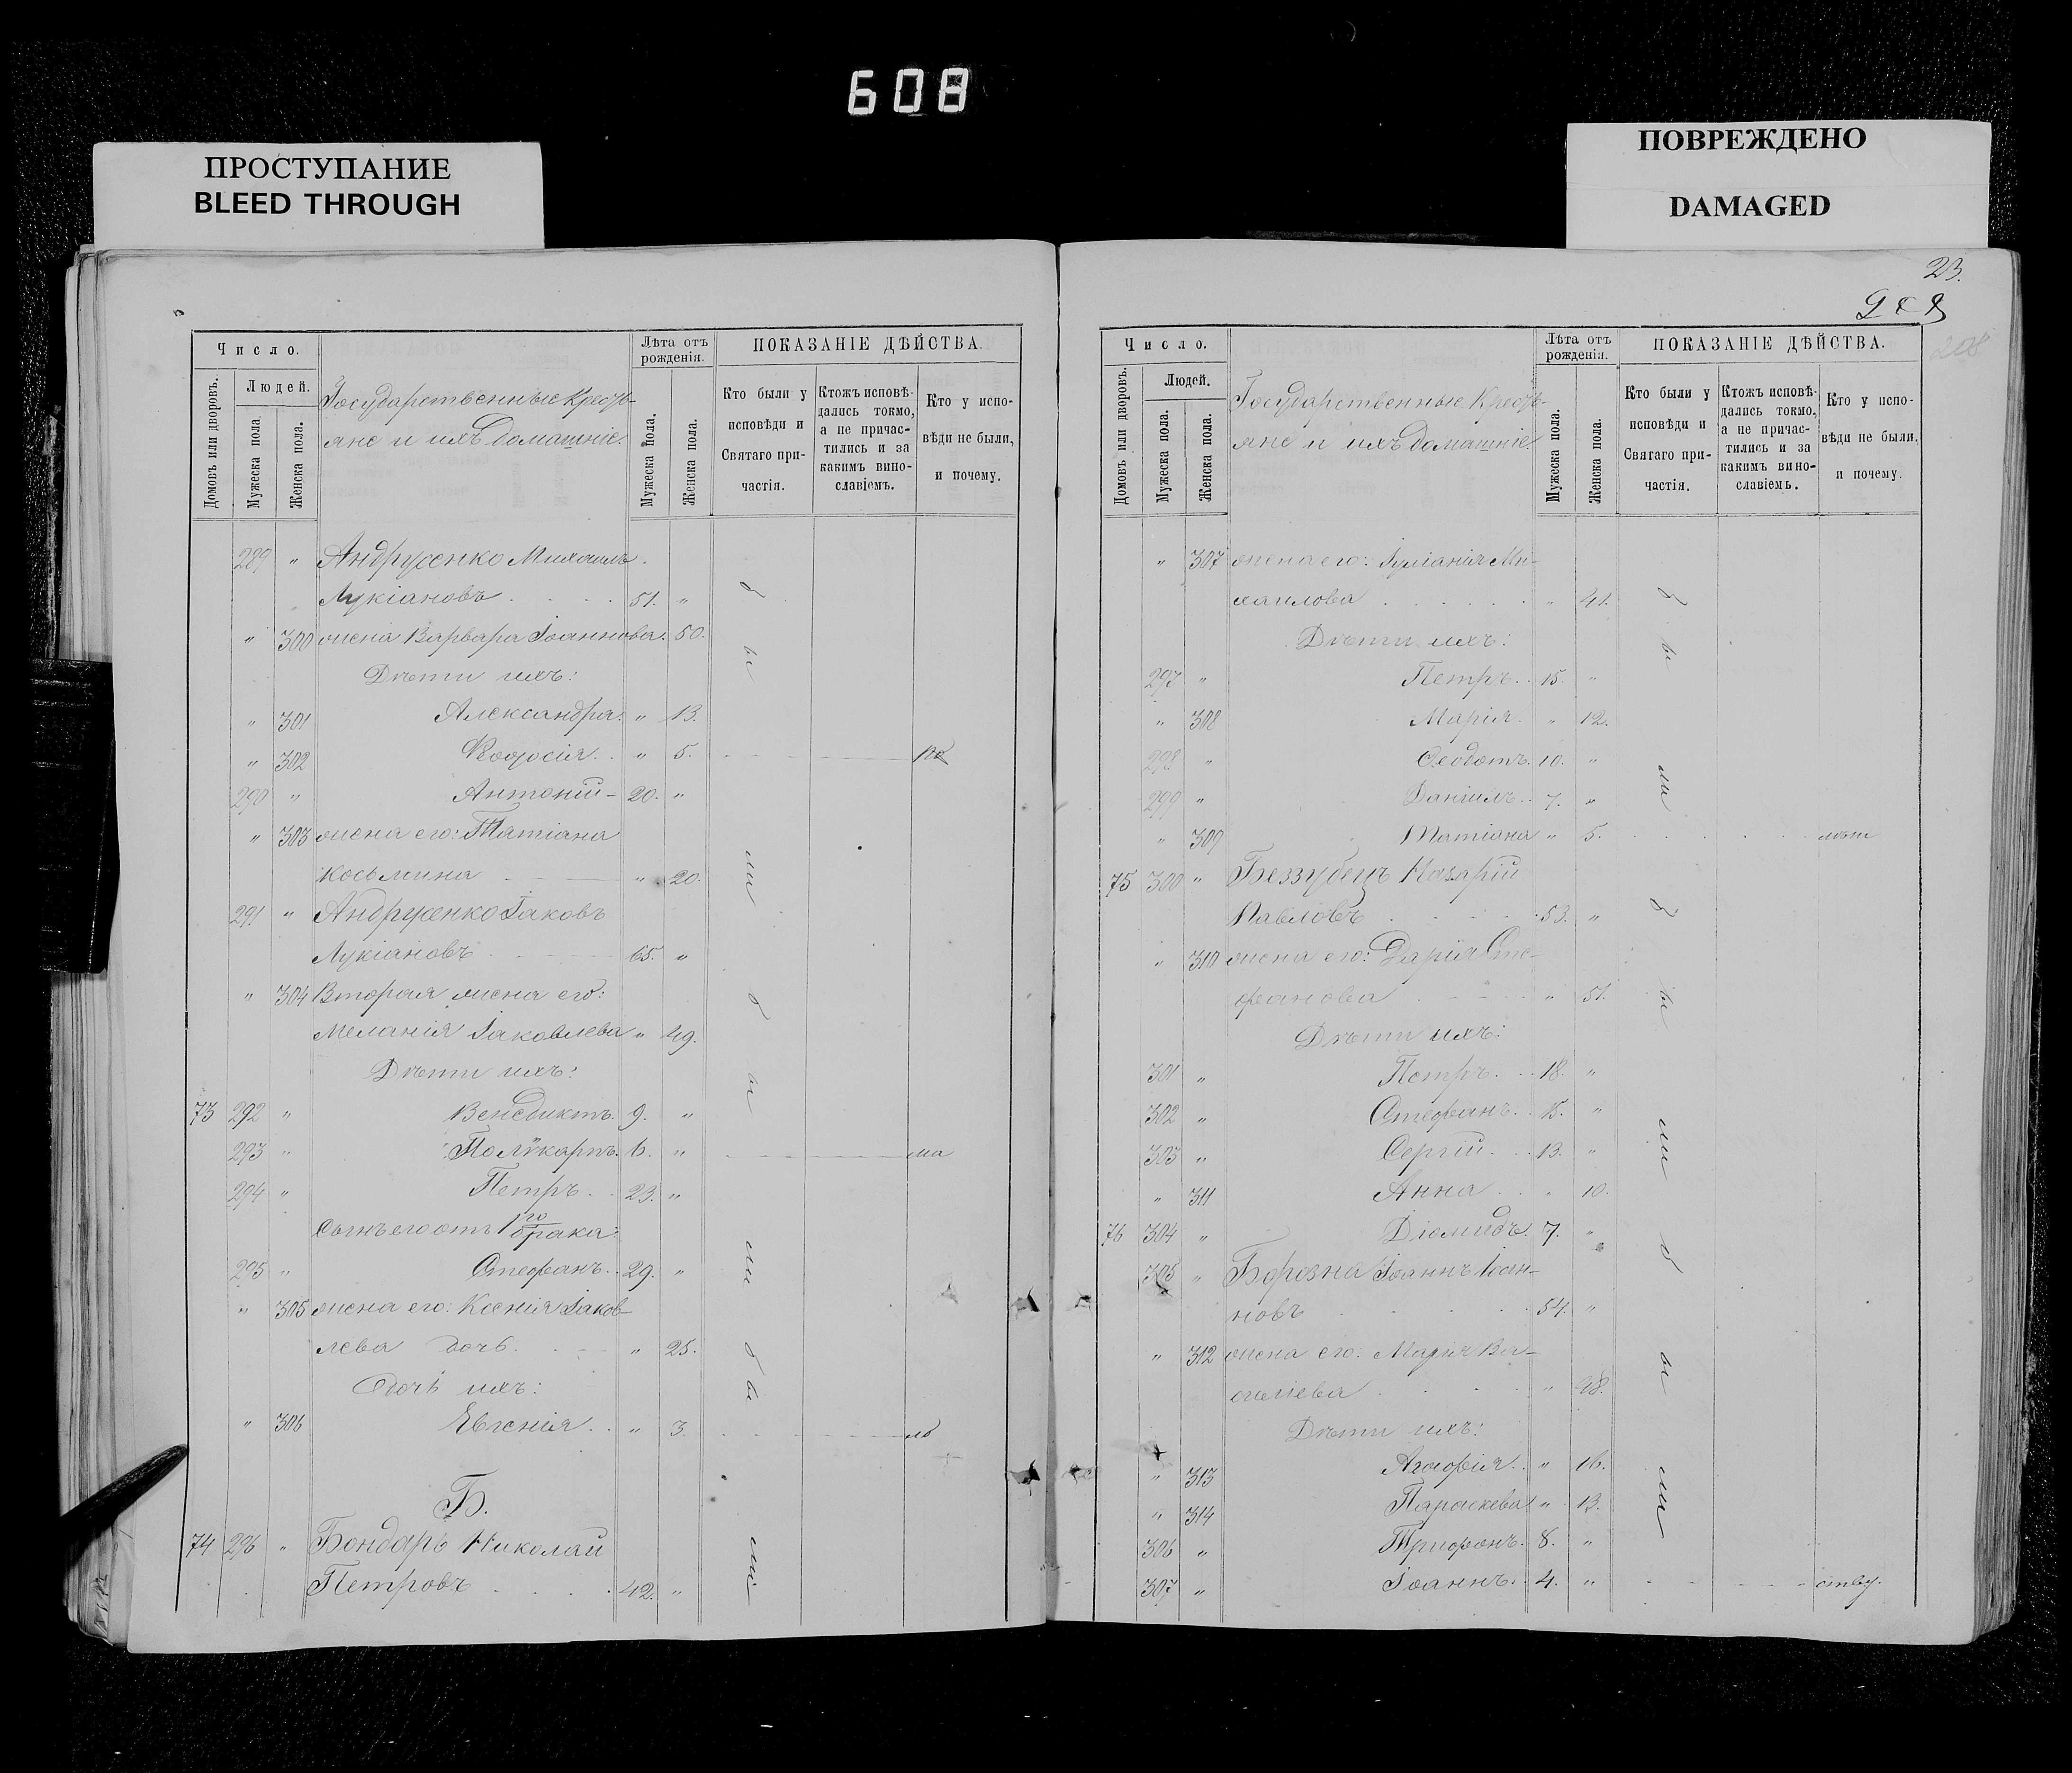 608
ПРОСТУПАНИЕ
BLEED THROUGH
ПОВРЕЖДЕНО
DAMAGED
Число.
Домовъ или дворовъ.
Людей.
Мужеска пола
Женска пола.
Государственные Кресть-
яне и ихъ домашніе.
Лѣта отъ
рожденія.
Мужеска пола.
Женска пола.
ПОКАЗАНІЕ ДѢЙСТВА.
Кто были у
исповѣди и
Святаго при-
частія.
Ктожъ исповѣ-
дались токмо,
а не причас-
тились и за
какимъ вино-
славіемъ.
Кто у испо-
вѣди не были,
и почему.
289 " Андрусенко Михаилъ
Лукіановъ 51. "
" 300 жена Варвара Іоаннова. 50.
Дѣти ихъ:
" 301 Александра. " 13.
" 302 " 5.
290 " Антоній 20. "
" 303 жена его: Татіана
Косьмина " 20.
291 " Андрусенко Іаковъ
Лукіановъ 65. "
" 304 Вторая жена его:
Меланія Іаковлева " 49.
Дѣти ихъ:
73 292 " Венедиктъ. 9. "
293 " Полѵкарпъ. 6. " ма
294 " Петръ 23. "
Сынъ его отъ 1го брака:
295 " Стефанъ 29. "
" 305 жена его: Ксенія Іаков-
лева дочь " 25.
Дочь ихъ:
" 306 Евгенія " 3. ло
Б.
74 296 " Бондарь Николай
Петровъ 42. "
были были были
23.
208
Число.
Домовъ или дворовъ.
Людей.
Мужеска пола.
Женска пола.
Государственные Кресть-
яне и ихъ домашніе.
Лѣта отъ
рожденія.
Мужеска пола.
Женска пола.
ПОКАЗАНІЕ ДѢЙСТВА.
Кто были у
исповѣди и
Святаго при-
частія.
Ктожъ исповѣ-
дались токмо,
а не причас-
тились и за
какимъ вино-
славіемъ.
Кто у испо-
вѣди не были,
и почему.
" 307 жена его: Іуліанія Ми-
хаилова " 41.
Дѣти ихъ:
297 " Петръ 15. "
" 308 Марія " 12.
298 " Ѳеодотъ. 10. "
299 " Даніилъ 7. "
" 309 Татіана " 5. лѣт
75 300 " Беззубецъ Назарій
Павловъ 53. "
" 310 жена его: Дарія Сте-
фанова " 51.
Дѣти ихъ:
301 " Петръ 18. "
302 " Стефанъ 15. "
303 " Сергій 13. "
" 311 Анна " 10.
76 304 " Діомидъ 7. "
305 " Борозна Іоаннъ Іоан-
новъ 54. "
" 312 жена его: Марія Ва-
силіева "
Дѣти ихъ:
" 313 Агафія " 16.
" 314 Параскева " 13.
306 " Трифонъ. 8. "
307 " Іоаннъ. 4. " ству.
были были были